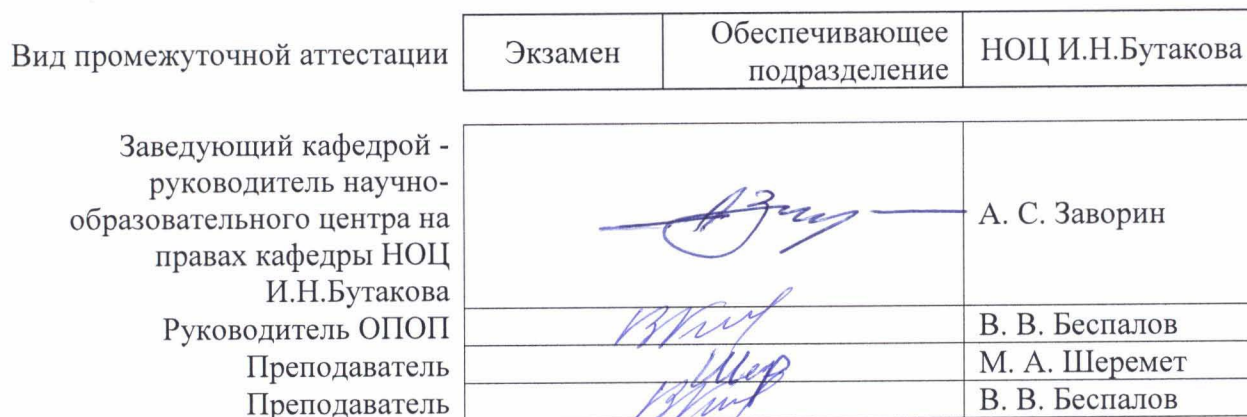 Вид промежуточной аттестации Экзамен Обеспечивающее подразделение НОЦ И.Н.Бутакова
Заведующий кафедрой -
руководитель научно-
образовательного центра на
правах кафедры НОЦ
И.Н.Бутакова А. С. Заворин
Руководитель ОПОП В. В. Беспалов
Преподаватель М. А. Шеремет
Преподаватель В. В. Беспалов